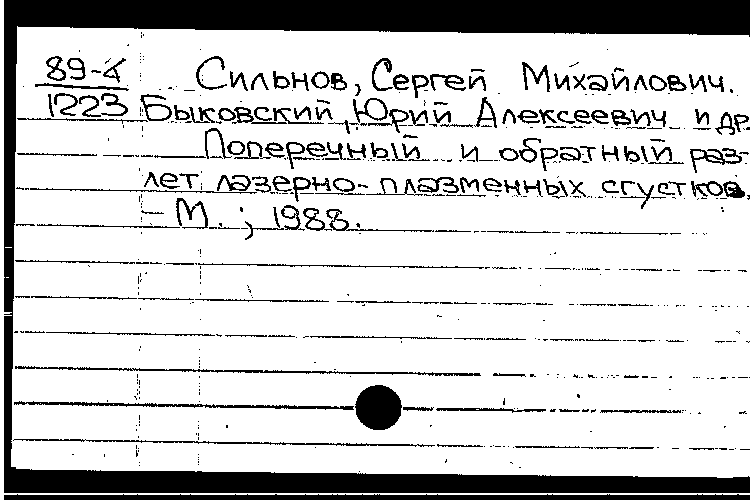 89-4 Сильнов, Сергей Михайлович.
1223 Быковский, Юрий Алексеевич и др.
Поперечный и обратный раз-
лет лазерно-плазменных сгустков.
– М. ; 1988.